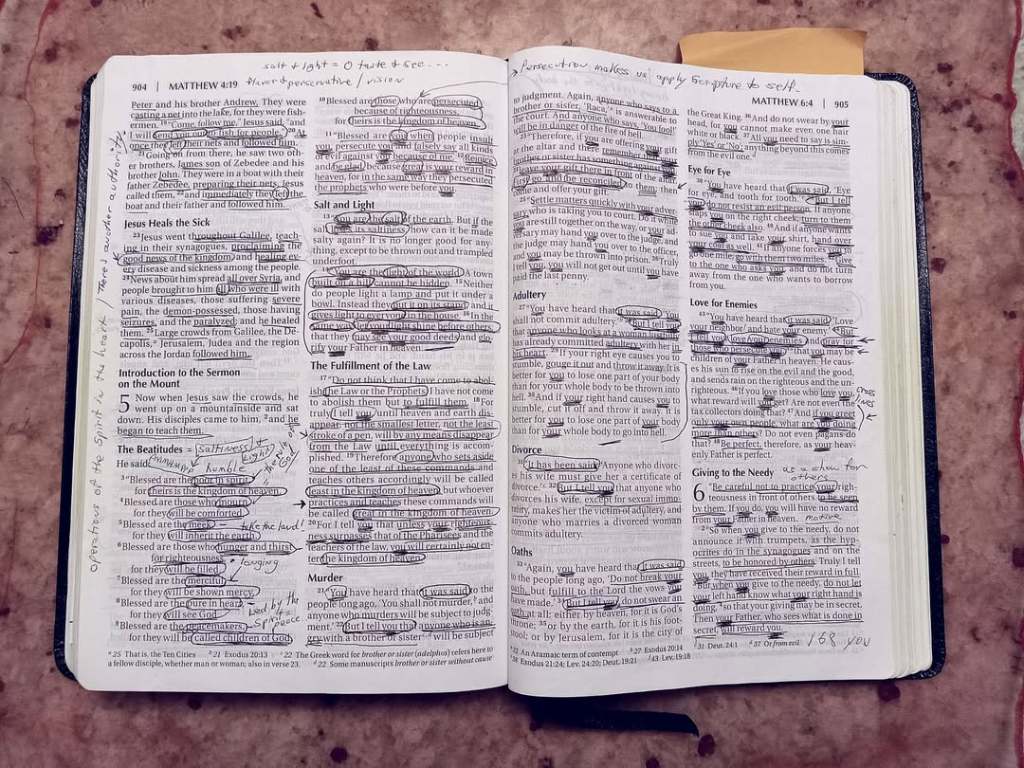 salt & light = O taste & see...
flavor & perservative / vision
904 | MATTHEW 4:19
Peter and his brother Andrew. They were
casting a net into the lake, for they were fish-
ermen. 19 "Come, follow me," Jesus said, "and
I will send you out to fish for people." 20 At
once they left their nets and followed him.
21 Going on from there, he saw two oth-
er brothers, James son of Zebedee and his
brother John. They were in a boat with their
father Zebedee, preparing their nets. Jesus
called them, 22 and immediately they left the
boat and their father and followed him.
Jesus Heals the Sick
23 Jesus went throughout Galilee, teach-
ing in their synagogues, proclaiming the
good news of the kingdom, and healing ev-
ery disease and sickness among the people.
24 News about him spread all over Syria, and
people brought to him all who were ill with
various diseases, those suffering severe
pain, the demon-possessed, those having
seizures, and the paralyzed; and he healed
them. 25 Large crowds from Galilee, the De-
capolis, a Jerusalem, Judea and the region
across the Jordan followed him.
Introduction to the Sermon
on the Mount
5 Now when Jesus saw the crowds, he
went up on a mountainside and sat
down. His disciples came to him, 2 and he
began to teach them.
The Beatitudes = saltiness & light!
He said: humble
3 "Blessed are the poor in spirit,
for theirs is the kingdom of heaven.
4 Blessed are those who mourn,
for they will be comforted.
5 Blessed are the meek, – take the land!
for they will inherit the earth.
6 Blessed are those who hunger and thirst
for righteousness, longing
for they will be filled.
7 Blessed are the merciful,
for they will be shown mercy.
8 Blessed are the pure in heart,
for they will see God. led by the
9 Blessed are the peacemakers, Spirit peace
for they will be called children of God.
operations of the spirit in the heart / Theres another authority
10 Blessed are those who are persecuted
because of righteousness,
for theirs is the kingdom of heaven.
11 "Blessed are you when people insult
you, persecute you and falsely say all kinds
of evil against you because of me. 12 Rejoice
and be glad, because great is your reward in
heaven, for in the same way they persecuted
the prophets who were before you.
Salt and Light
13 "You are the salt of the earth. But if the
salt loses its saltiness, how can it be made
salty again? It is no longer good for any-
thing, except to be thrown out and trampled
underfoot.
14 "You are the light of the world. A town
built on a hill cannot be hidden. 15 Neither
do people light a lamp and put it under a
bowl. Instead they put it on its stand, and it
gives light to everyone in the house. 16 In the
same way, let your light shine before others,
that they may see your good deeds and glo-
rify your Father in heaven.
The Fulfillment of the Law
17 "Do not think that I have come to abol-
ish the Law or the Prophets; I have not come
to abolish them but to fulfill them. 18 For
truly I tell you, until heaven and earth dis-
appear, not the smallest letter, not the least
stroke of a pen, will by any means disappear
from the Law until everything is accom-
plished. 19 Therefore anyone who sets aside
one of the least of these commands and
teaches others accordingly will be called
least in the kingdom of heaven, but whoever
practices and teaches these commands will
be called great in the kingdom of heaven.
20 For I tell you that unless your righteous-
ness surpasses that of the Pharisees and the
teachers of the law, you will certainly not en-
ter the kingdom of heaven.
Murder
21 "You have heard that it was said to the
people long ago, 'You shall not murder, b and
anyone who murders will be subject to judg-
ment.' 22 But I tell you that anyone who is an-
gry with a brother or sister c d will be subject
a 25 That is, the Ten Cities b 21 Exodus 20:13 c 22 The Greek word for brother or sister (adelphos) refers here to
a fellow disciple, whether man or woman; also in verse 23. d 22 Some manuscripts brother or sister without cause
Persecution makes us apply Scripture to self.
MATTHEW 6:4 | 905
to judgment. Again, anyone who says to a
brother or sister, 'Raca,' e is answerable to
the court. And anyone who says, 'You fool!'
will be in danger of the fire of hell.
23 "Therefore, if you are offering your gift
at the altar and there remember that your
brother or sister has something against
you, 24 leave your gift there in front of the
altar. First go and be reconciled to them; then
come and offer your gift.
25 "Settle matters quickly with your adver-
sary who is taking you to court. Do it while
you are still together on the way, or your ad-
versary may hand you over to the judge, and
the judge may hand you over to the officer,
and you may be thrown into prison. 26 Truly
I tell you, you will not get out until you have
paid the last penny.
Adultery
27 "You have heard that it was said, 'You
shall not commit adultery.' f 28 But I tell you
that anyone who looks at a woman lustfully
has already committed adultery with her in
his heart. 29 If your right eye causes you to
stumble, gouge it out and throw it away. It is
better for you to lose one part of your body
than for your whole body to be thrown into
hell. 30 And if your right hand causes you to
stumble, cut it off and throw it away. It is
better for you to lose one part of your body
than for your whole body to go into hell.
Divorce
31 "It has been said, 'Anyone who divorc-
es his wife must give her a certificate of
divorce.' g 32 But I tell you that anyone who
divorces his wife, except for sexual immo-
rality, makes her the victim of adultery, and
anyone who marries a divorced woman
commits adultery.
Oaths
33 "Again, you have heard that it was said
to the people long ago, 'Do not break your
oath, but fulfill to the Lord the vows you
have made.' 34 But I tell you, do not swear an
oath at all: either by heaven, for it is God's
throne; 35 or by the earth, for it is his foot-
stool; or by Jerusalem, for it is the city of
the Great King. 36 And do not swear by your
head, for you cannot make even one hair
white or black. 37 All you need to say is sim-
ply 'Yes' or 'No'; anything beyond this comes
from the evil one. h
Eye for Eye
38 "You have heard that it was said, 'Eye
for eye, and tooth for tooth.' 39 But I tell
you, do not resist an evil person. If anyone
slaps you on the right cheek, turn to them
the other cheek also. 40 And if anyone wants
to sue you and take your shirt, hand over
your coat as well. 41 If anyone forces you to
go one mile, go with them two miles. 42 Give
to the one who asks you, and do not turn
away from the one who wants to borrow
from you.
Love for Enemies
43 "You have heard that it was said, 'Love
your neighbor and hate your enemy.' 44 But
I tell you, love your enemies and pray for
those who persecute you, 45 that you may be
children of your Father in heaven. He caus-
es his sun to rise on the evil and the good,
and sends rain on the righteous and the un-
righteous. 46 If you love those who love you,
what reward will you get? Are not even the
tax collectors doing that? 47 And if you greet
only your own people, what are you doing
more than others? Do not even pagans do
that? 48 Be perfect, therefore, as your heav-
enly Father is perfect.
Giving to the Needy as a show for others
6 "Be careful not to practice your right-
eousness in front of others to be seen
by them. If you do, you will have no reward
from your Father in heaven. motive
2 "So when you give to the needy, do not
announce it with trumpets, as the hyp-
ocrites do in the synagogues and on the
streets, to be honored by others. Truly I tell
you, they have received their reward in full.
3 But when you give to the needy, do not let
your left hand know what your right hand is
doing, 4 so that your giving may be in secret.
Then your Father, who sees what is done in
secret, will reward you.
e 22 An Aramaic term of contempt f 27 Exodus 20:14 g 31 Deut. 24:1 h 37 Or from evil 168 you
i 38 Exodus 21:24; Lev. 24:20; Deut. 19:21 j 43 Lev. 19:18